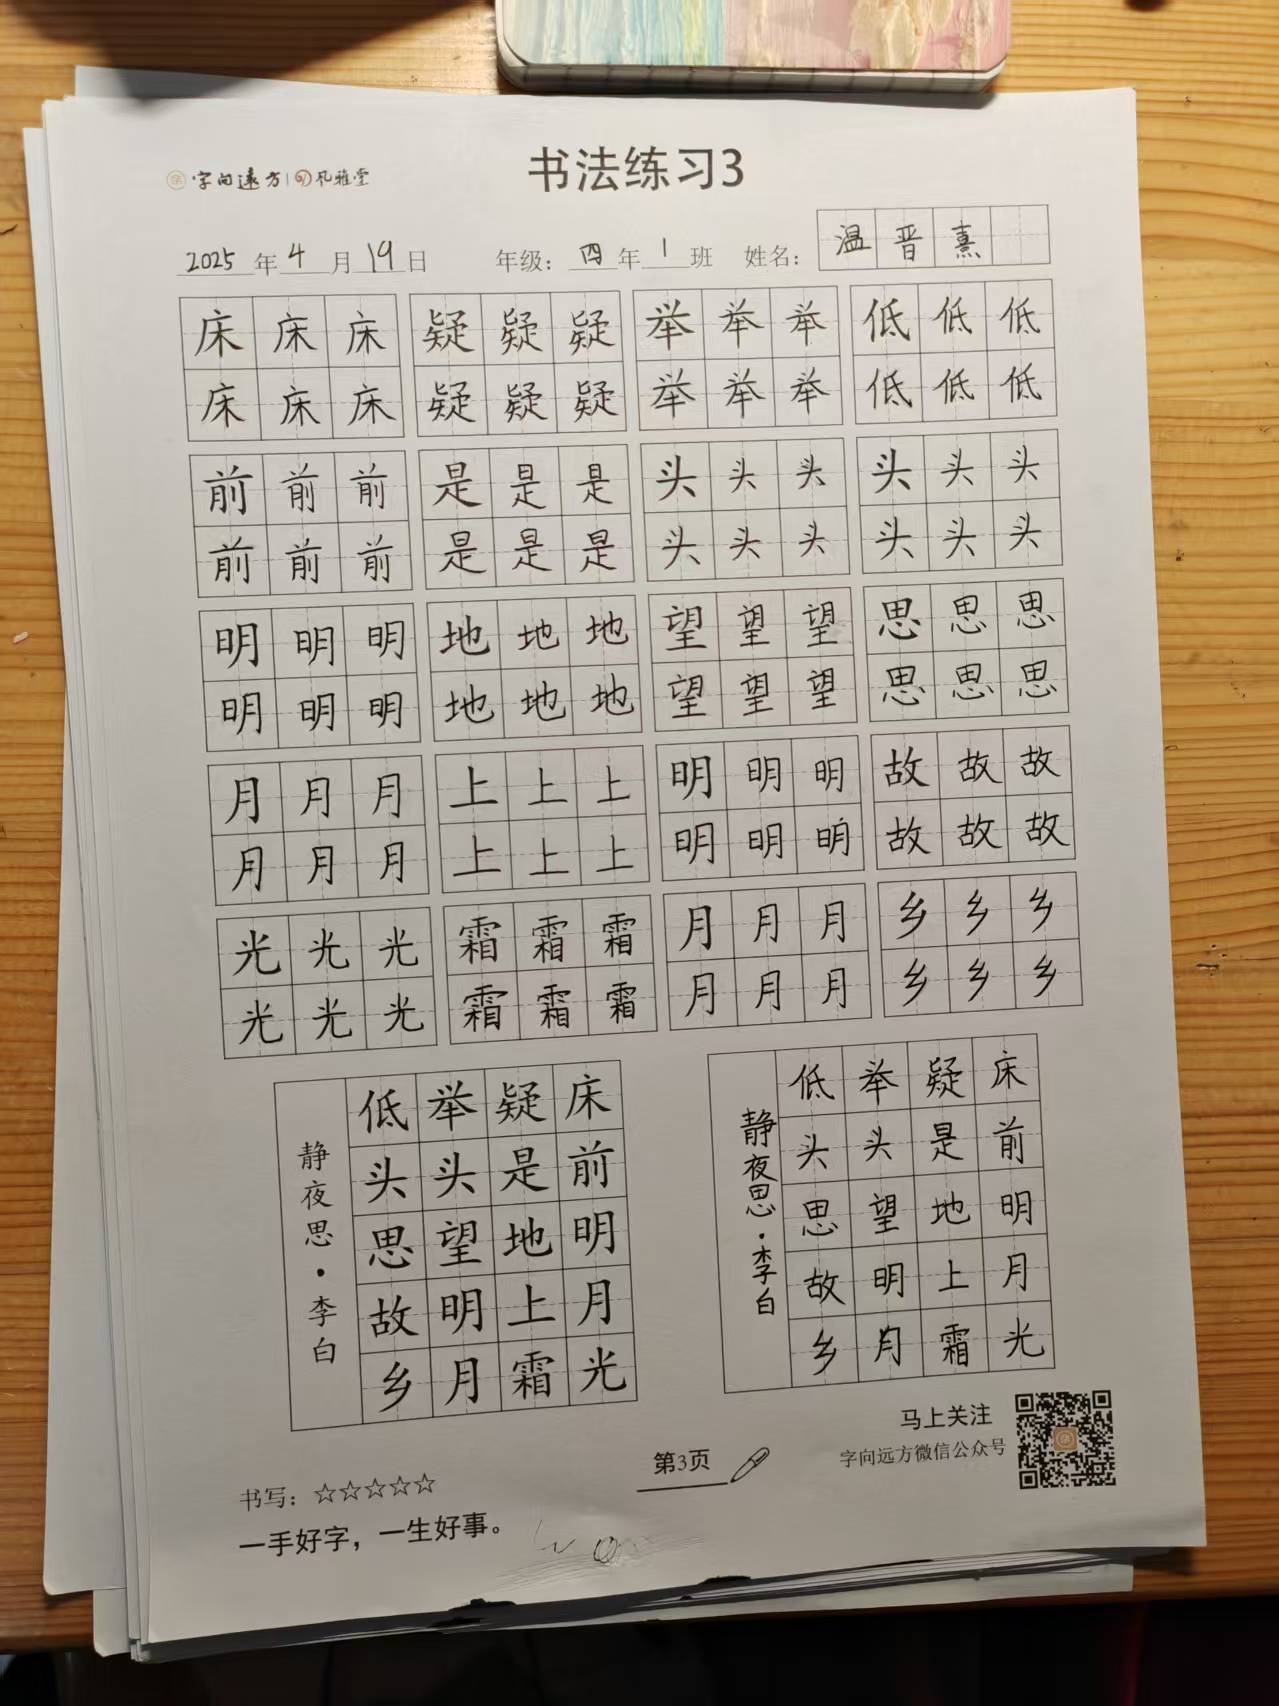 字向远方 孔雅堂
书法练习3
2025年4月19日 年级：四年1班 姓名：温晋熹
床床床 疑疑疑 举举举 低低低
床床床 疑疑疑 举举举 低低低
前前前 是是是 头头头 头头头
前前前 是是是 头头头 头头头
明明明 地地地 望望望 思思思
明明明 地地地 望望望 思思思
月月月 上上上 明明明 故故故
月月月 上上上 明明明 故故故
光光光 霜霜霜 月月月 乡乡乡
光光光 霜霜霜 月月月 乡乡乡
床前明月光
疑是地上霜
举头望明月
低头思故乡
静夜思·李白
床前明月光
疑是地上霜
举头望明月
低头思故乡
静夜思·李白
马上关注
字向远方微信公众号
第3页
书写：☆☆☆☆☆
一手好字，一生好事。